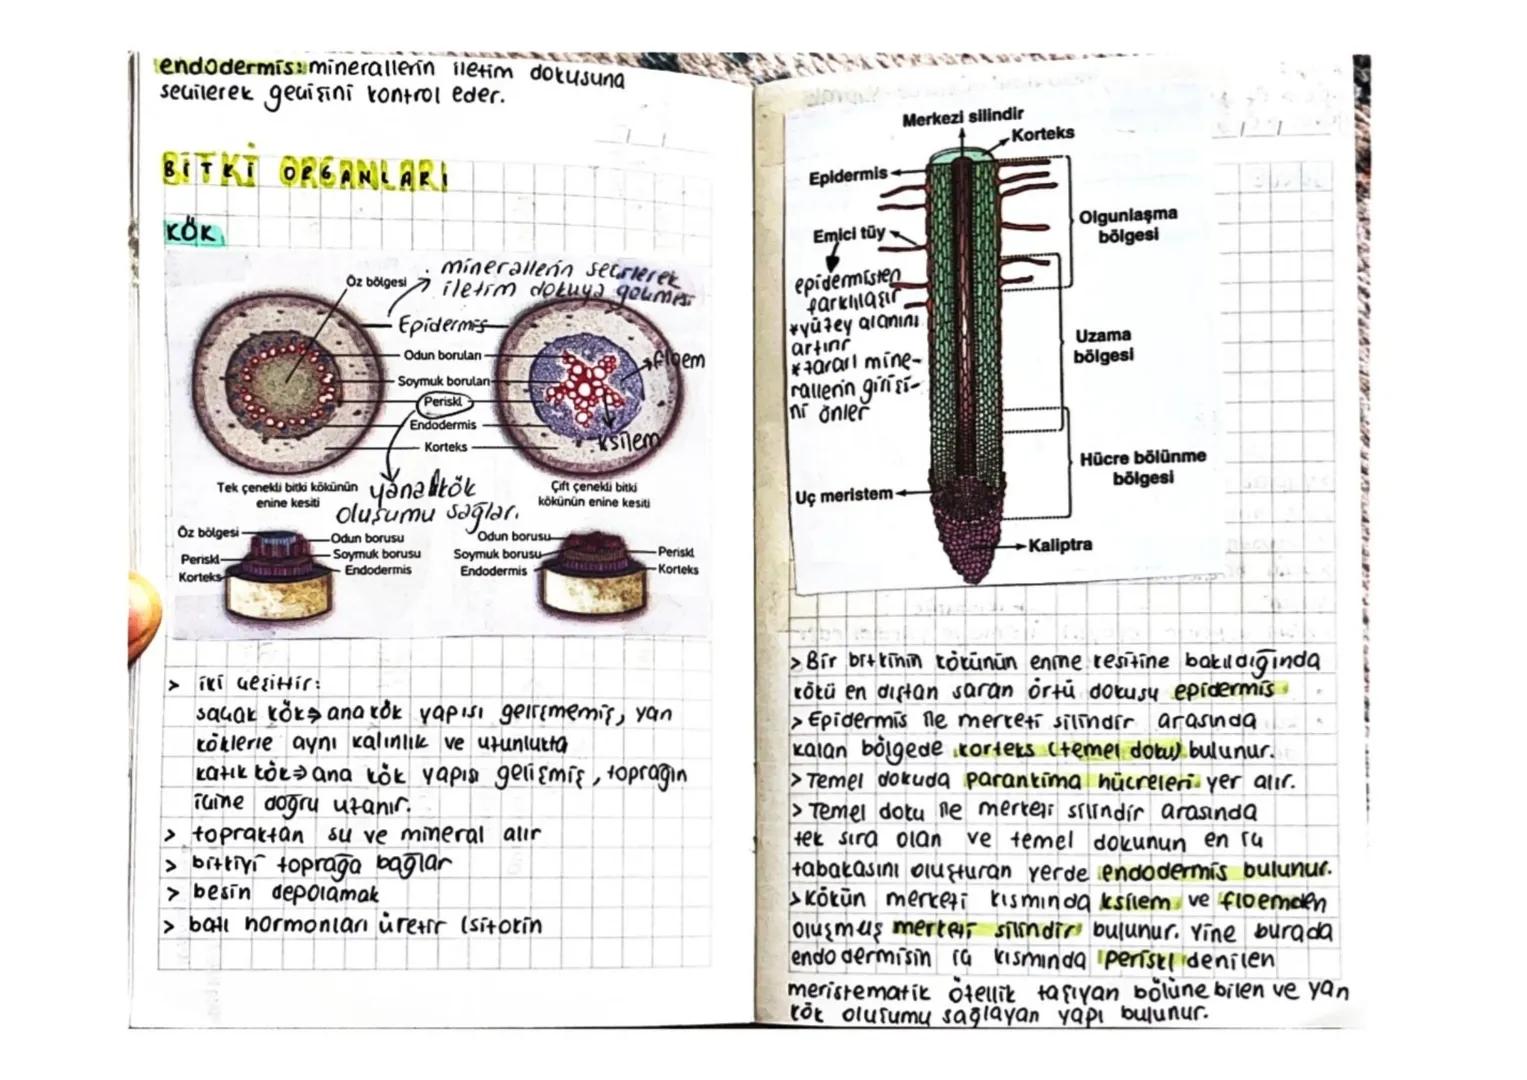 endodermis: minerallerin iletim dokusuna
seçilerek geçişini kontrol eder.
BİTKİ ORGANLARI
KÖK
Öz bölgesi
minerallerin seçilerek
iletim dokuya geçmesi
Epidermis
Odun boruları
floem
Soymuk boruları
Periskl
Endodermis
Korteks
ksilem
Tek çenekli bitki kökünün
enine kesiti
yanal kök
oluşumu sağlar.
Çift çenekli bitki
kökünün enine kesiti
Öz bölgesi
Odun borusu
Periskl
Soymuk borusu
Korteks
Endodermis
Odun borusu
Soymuk borusu
Periskl
Endodermis
Korteks
> iki çeşittir:
saçak kök⇒ ana kök yapısı gelişmemiş, yan
köklerle aynı kalınlık ve uzunlukta
kazık kök⇒ ana kök yapısı gelişmiş, toprağın
içine doğru uzanır.
> topraktan su ve mineral alır
> bitkiyi toprağa bağlar
> besin depolamak
> bazı hormonları üretir (sitokin
Merkezi silindir
Korteks
Epidermis
Emici tüy
epidermisten
farklılaşır
*yüzey alanını
artırır
*zararlı mine-
rallerin girişi-
ni önler
Olgunlaşma
bölgesi
Uzama
bölgesi
Hücre bölünme
bölgesi
Uç meristem
Kaliptra
> Bir bitkinin kökünün enine kesitine bakıldığında
kökü en dıştan saran örtü dokusu epidermis
> Epidermis ile merkezi silindir arasında
kalan bölgede korteks (temel doku) bulunur.
> Temel dokuda parankima hücreleri yer alır.
> Temel doku ile merkezi silindir arasında
tek sıra olan ve temel dokunun en iç
tabakasını oluşturan yerde endodermis bulunur.
> Kökün merkezi kısmında ksilem ve floemden
oluşmuş merkezi silindir bulunur. Yine burada
endodermisin iç kısmında periskl denilen
meristematik özellik taşıyan bölünebilen ve yan
kök oluşumu sağlayan yapı bulunur.